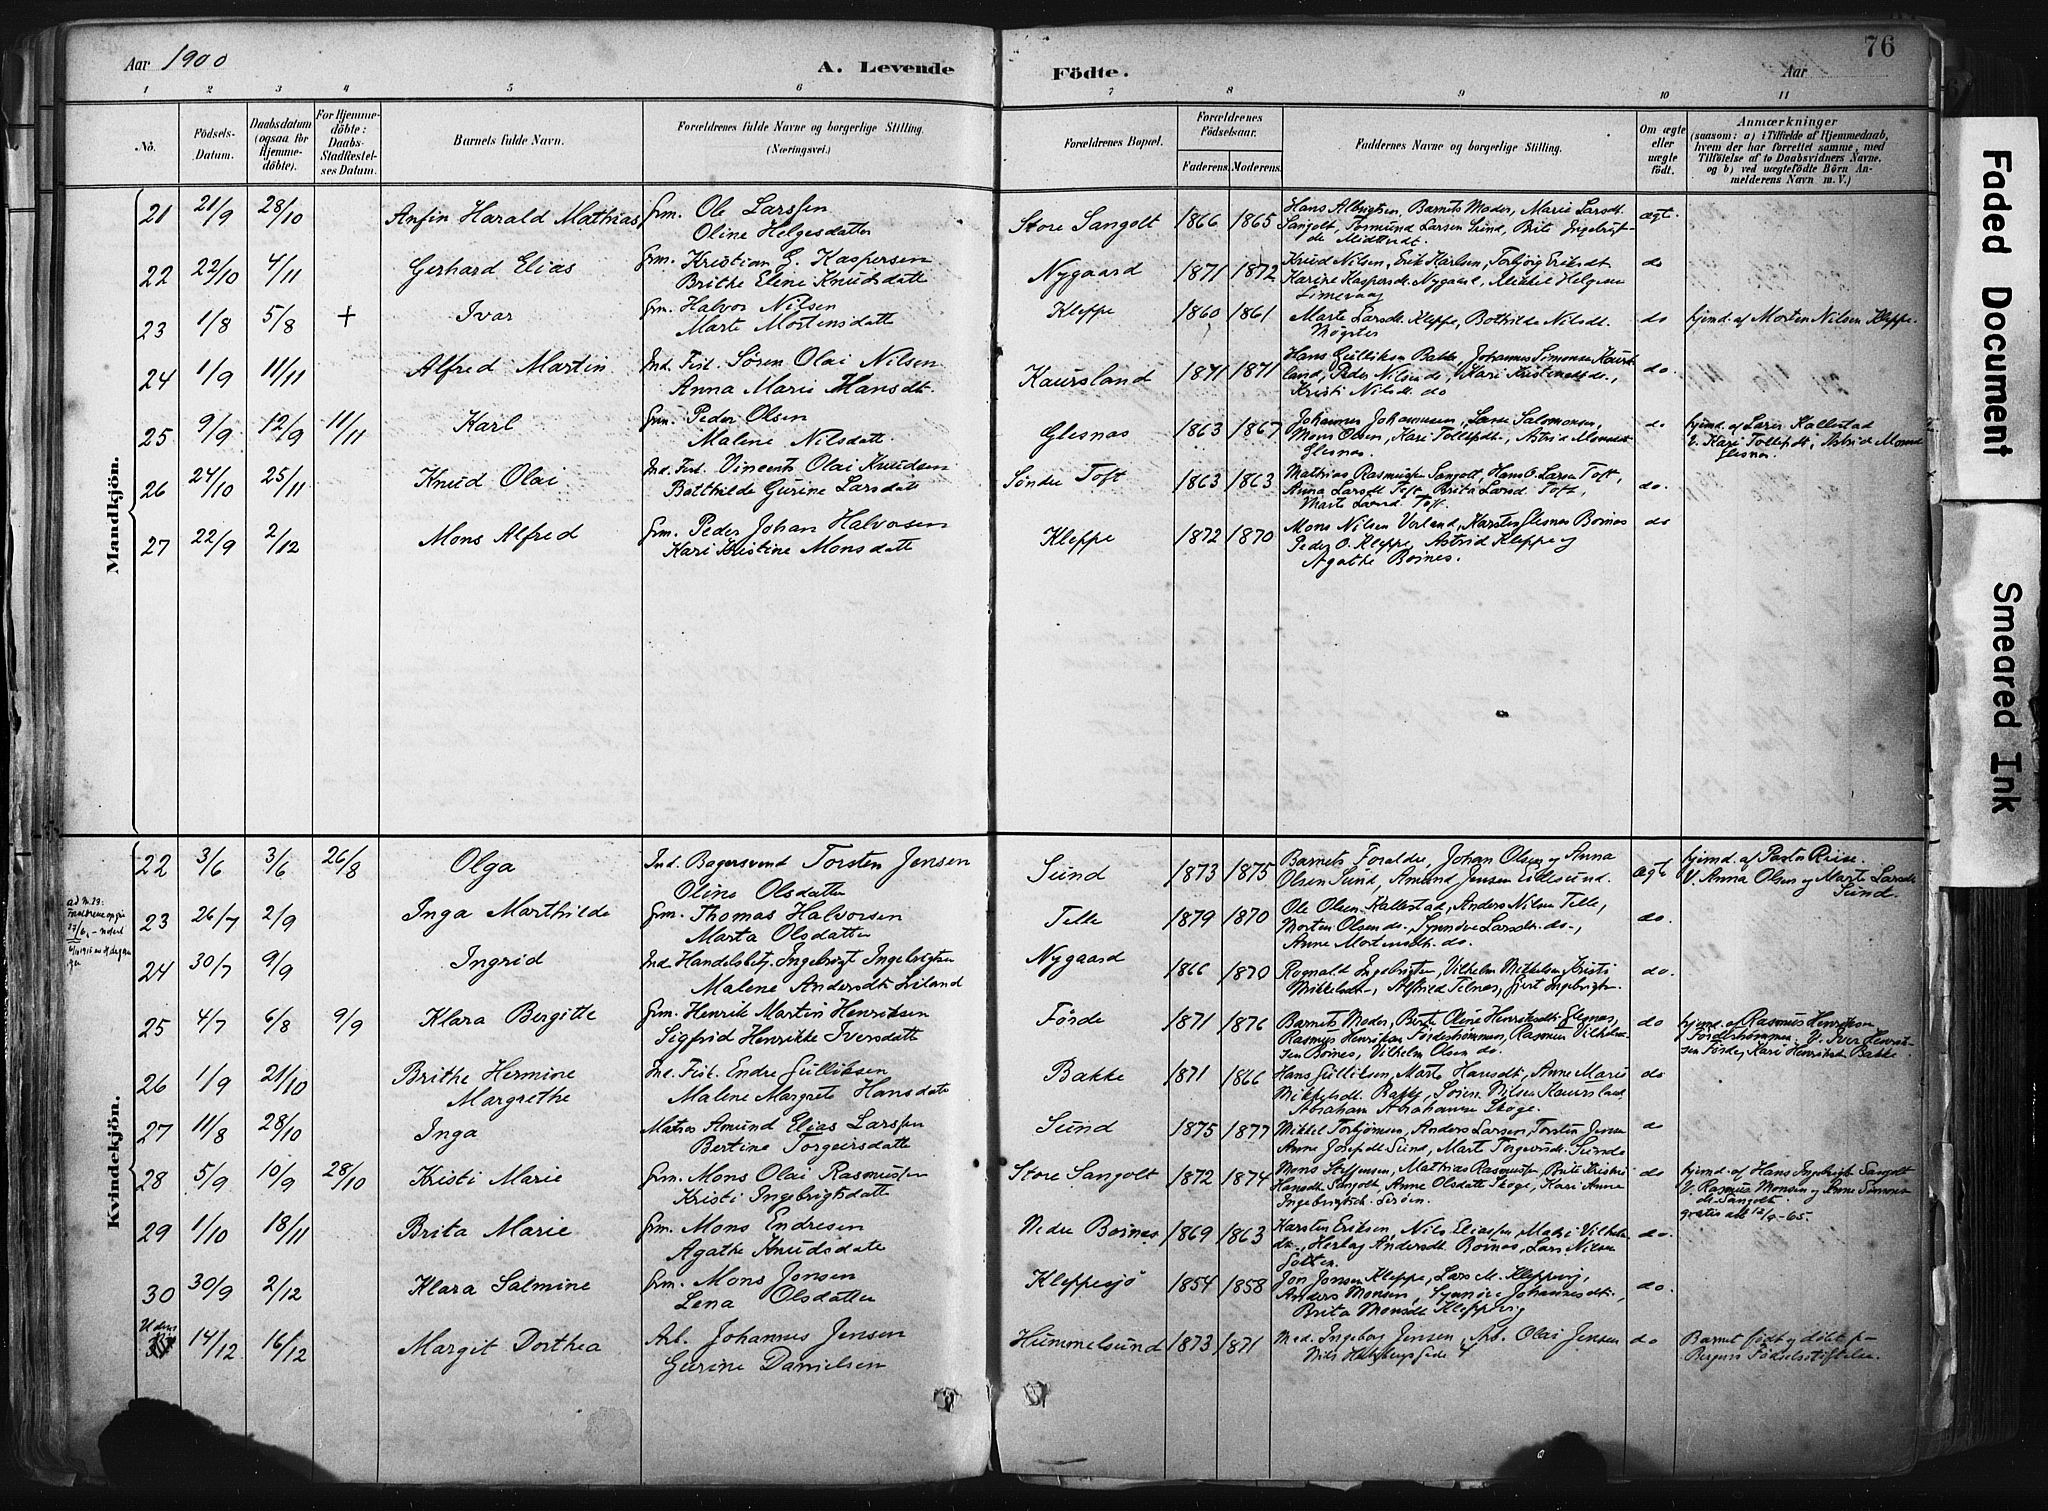 76
Aar 1900
A. Levende Födte.
Aar
1 2 3 4 5 6 7 8 9 10 11
No.
Födsels-Datum.
Daabsdatum (ogsaa for Hjemmedöbte).
For Hjemmedöbte: Daabs-Stadfæstelses Datum.
Barnets fulde Navn.
Forældrenes fulde Navne og borgerlige Stilling. (Næringsvei.)
Forældrenes Bopæl.
Forældrenes Födselsaar.
Faderens. Moderens.
Faddernes Navne og borgerlige Stilling.
Om ægte eller uægte født.
Anmærkninger
(saasom: a) i Tilfælde af Hjemmedaab, hvem der har forrettet samme, med Tilföielse af to Daabsvidners Navne, og b) ved uægtefödte Börn Anmelderens Navn m. V.)
Mandkjön.
21 21/9 28/10 Anfin Harald Mathias Grm. Ole Larssen Store Sangolt 1866 1865 Hans Albrigtsen, Barnets Moder, Marie Larsdt. ægt.
Oline Helgesdatter Sangolt, Tormund Larsen Sund, Brite
de Midttvedt.
22 22/10 4/11 Gerhard Elias Grm. Kristian G. Kaspersen Nygaard 1871 1872 Knud Nilsen, Erik Karlsen, Torbjörg Eriksdt do
Brithe Elene Knudsdatte Karine Kaspersdt. Nygaard, Mikkel Helgesen
Limevaag
23 1/8 5/8 + Ivar Grm. Halvor Nilsen Kleppe 1860 1861 Marte Larsdt. Kleppe, Bothilde Nilsdt. do hjemd. af Morten Nilsen Kleppe.
Marte Mortensdatte
24 1/9 11/11 Alfred Martin Ind. Fisk. Søren Olai Nilsen Kaursland 1871 1871 Hans Gulliksen Bakke, Johannes Simonsen Kaurs- do.
Anna Marie Hansdt. land, Peder Nilsen do,
Kristi Nilsdt. do
25 9/9 12/9 11/11 Karl Grm. Peder Olsen Glesnæs 1863 1867 Johannes Johannesen, Lasse Salomonsen, do hjemd. af Lars Kallestad
Malene Nilsdatte Mons Olsen, Kari Tollefsdt., Astrid Monsdt V. Kari Tollefsdt, Astrid Monsd
Glesnæs. Glesnæs.
26 24/10 25/11 Knud Olai Ind. Fisk. Vincents Olai Knudsen Søndre Toft 1863 1863 Mathias Rasmussen Sangolt, Hans O. Larsen Toft, do.
Botthilde Gurine Larsdatte Anna Larsdt Toft, Brita Larsd. Toft,
Marte Larsd. Toft.
27 22/9 2/12 Mons Alfred Grm. Peder Johan Halvorsen Kleppe 1872 1870 Mons Nilsen Vorland, Karsten Glesnæs Bornæs do
Kari Kristine Monsdatte Peder O. Kleppe, Astrid Kleppe og
Agathe Bornes.
Kvindekjön.
22 3/6 3/6 26/8 Olga Ind. Bagersvend Torsten Jensen Sund 1873 1875 Barnets Foraldre, Johan Olsen og Anna ægt hjemd. af Pastor Riise.
Oline Olsdatter Olsen Sund, Amund Jensen Eidesund. V. Anna Olsen og Marte Larsdt
Sund.
23 26/7 2/9 Inga Marthilde Grm. Thomas Halvorsen Telle 1879 1870 Ole Olsen Kallestad, Anders Nilsen Telle, do.
Marta Olsdatter Morten Olsen do., Synnøve Larsdt. do.,
Anne Mortensdt. do.
24 30/7 9/9 Ingrid Ind Handelsbetj. Ingebrigt Ingebrigtsen Nygaard 1866 1870 Rognald Ingebrigtsen, Vilhelm Mikkelsen, Kristi do.
Malene Andersdt. Liland Mikkelsdt., Alfhild Telnes, Gjert Ingebrigtsen.
25 4/7 6/8 9/9 Klara Bergitte Grm. Henrik Martin Henriksen Førde 1871 1876 Barnets Moder, Berte Oline Henriksdt Glesnæs, do hjemd. af Rasmus Henriksen
Sigfrid Henrikke Iversdatte Rasmus Henriksen Fördestrømmen, Rasmus Vilhelm- Fördestrømmen. V. Iver Henrik-
sen Bornes, Vilhelm Olsen do. sen Förde, Kari Henriksdt Bakke.
26 1/9 21/10 Brithe Hermine Ind. Fisk. Endre Gulliksen Bakke 1871 1866 Hans Gulliksen, Marte Hansdt, Anne Marie do
Margrethe Malene Margrete Hansdatte Mikkelsdt. Bakke, Søren Nilsen Kaursland,
Abraham Abrahamsen Skoge.
27 11/8 28/10 Inga Matros Amund Elias Larssen Sund 1875 1877 Mikkel Torbjörnsen, Anders Larsen, Torsten Jensen do
Bertine Torgeirsdatte Anne Josephsdt Sund, Marte Sunde
28 5/9 10/9 28/10 Kristi Marie Grm. Mons Olai Rasmussen Store Sangolt 1872 1874 Mons Steffensen, Mathias Rasmussen, Brite Kristine do hjemd. af Hans Ingebrigts. Sangolt
Kristi Ingebrigtsdatte Hansdt. Sangolt, Anne Olsdatte Skoge, Kari Anne V. Rasmus Monsen og Anne Simons
Ingebrigtsdt. dt. Sangolt.
gratis att 12/9-65.
29 1/10 18/11 Brita Marie Grm. Mons Endresen Nedre Bornes 1869 1863 Karsten Eriksen, Nils Eliassen, Mari Vilhelm- do.
Agathe Knudsdatte dt., Herborg Andersdt. Bornes, Lars Nilsen
Golten.
30 30/9 2/12 Klara Salmine Grm. Mons Jonsen Kleppesjö 1854 1858 Jon Jonsen Kleppe, Lars M. Kleppevig, do
Lena Olsdatter Anders Monsen, Synnöve Johannesdt.,
Brita Monsdt Kleppevig
Udens 14/12 16/12 Margit Dorthea Arb. Johannes Jensen Hummelsund 1873 1871 Mad. Ingeborg Jensen, Arb. Olai Jensen do Barnet født og døbt p-
Gurine Danielsen Nils gade 4 Bergens Fødselsstiftelse.
Faded Document
Smeared Ink